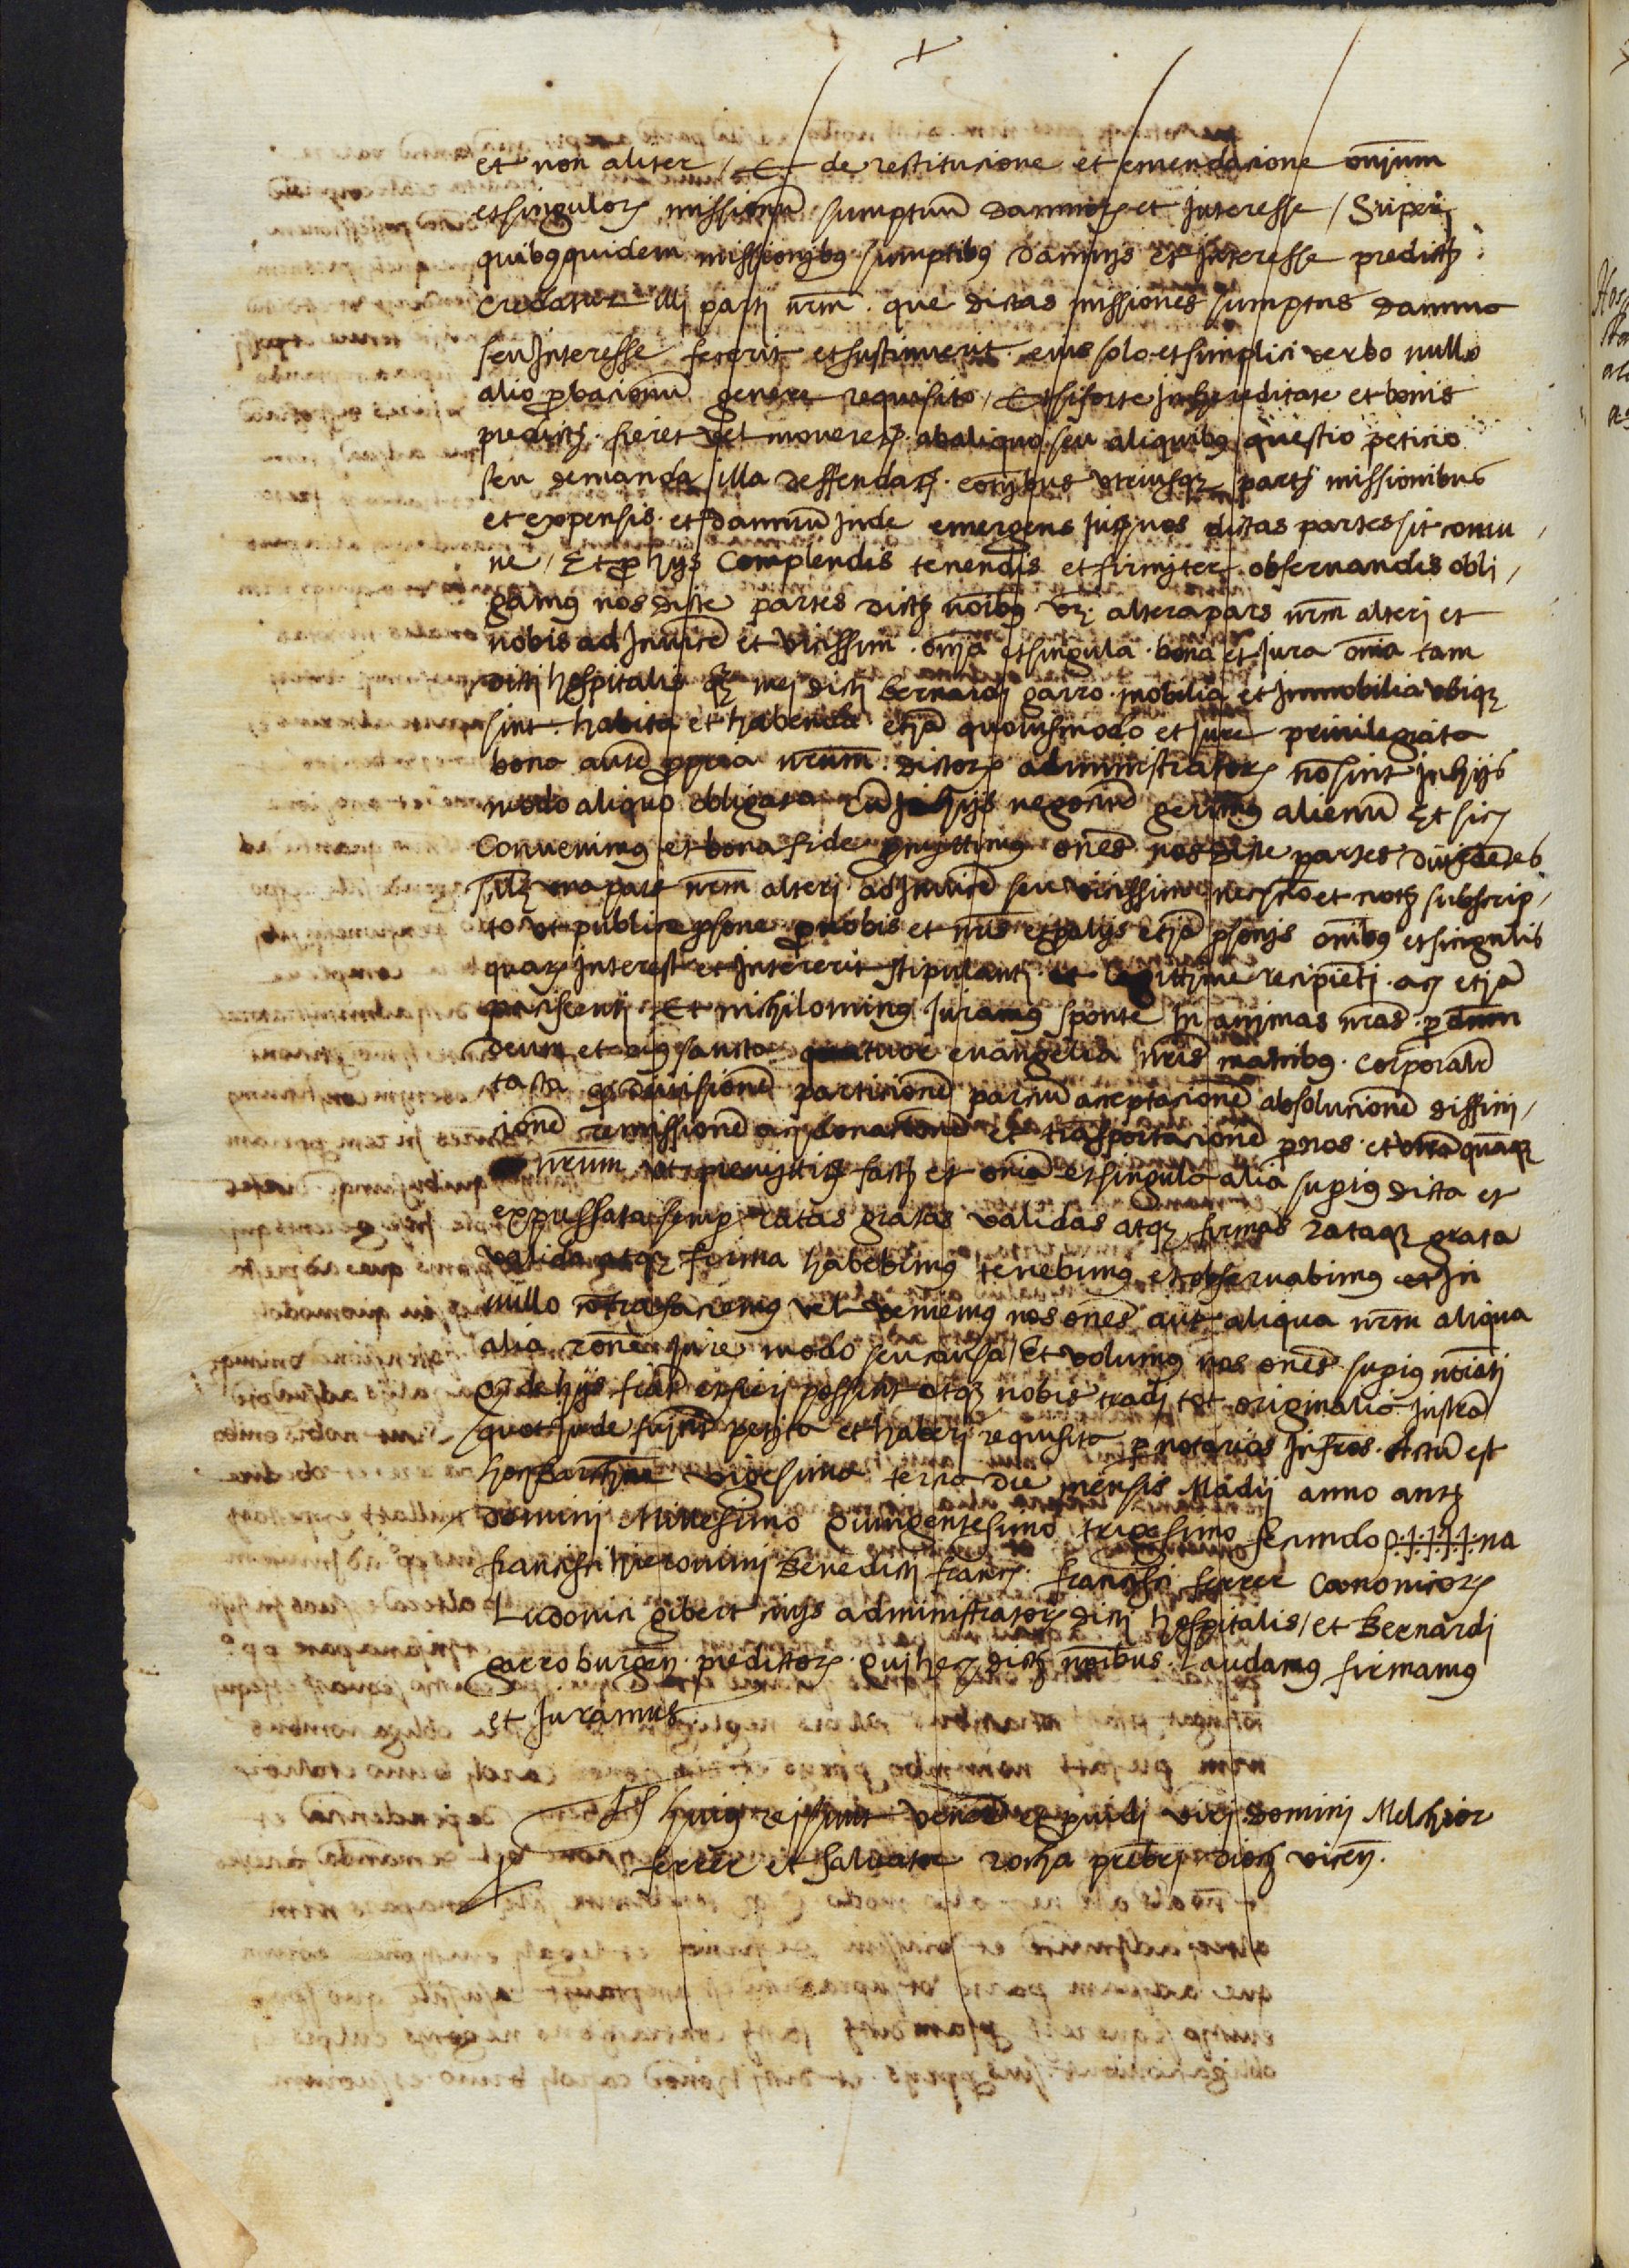 et non aliter / Et de restitucione et emendacione oniũm
et singulor missionũ sumptuũ damnor et Interesse / Super
quibus quidem missionibus sumptibus damnis et Interesse predict
credatur illi parti nrm̃ que dictas missiones sumptus damna
seu Interesse fecerit et sustinuerit eius solo et simplici verbo nullo
alio ꝓbacionũ genere requisito / Et si forte In hereditate et bonis
predict fieret vel moveret ab aliquo seu aliquibus questio peticio
seu demanda illa deffendat comibus utriusq part missionibus
et expensis et damnuũ Inde emergens Int nos dictas partes sit comu
ne / Et ꝓ hijs Complendis tenendis et firmiter observandis obli /
gamus nos dicte partes dict noĩbus vz altera pars nrm̃ alteri et
nobis ad Invicẽ et vicissim oĩa et singula bona et Jura oĩa tam
dicti hospitalis qz mei dicti Bernardi garro mobilia et Immobilia ubiqz
sint habita et habenda etiã quovismodo et Jure privilegiata
bona autẽ ꝓpria nrũm dictor administrator nõ sint In hijs
modo aliquo obligata cũ In hijs negociũ gerimus alienũ Et sic
Convenimus et bona fide ꝓmittimus oñes nos dicte partes dividẽtes
sĩlz una pars nrm̃ alteri ad Invicẽ seu vicissim necnõ et not subscrip /
to ut publice ꝑsone ꝓ nobis et nr̃is et alijs etiã ꝑsonis oĩbus et singulis
quar Interest et Intererit stipulanti et legittime recipiẽti ac etiã
paciscenti Et nichilominus Juramus sponte In animas nr̃as ꝑ dnm
deum et eius sancta quatuor evangelia nr̃is manibus corporalr̃
tacta ꝙ divisionẽ particionẽ parciũ acceptacionẽ absolucionẽ diffini /
cionẽ remissionẽ ac donacionẽ et trãsportacionẽ ꝑ nos et utrãquãqz
nrũm ut premittit fact et oĩa et singula alia supius dicta et
expressata semꝑ ratas gratas validas atqz firmas rataqz grata
valida atqz firma habebimus tenebimus et observabimus et In
nullo cõtrafaciemus vel veniemus nos oñes aut aliqua nrm̃ aliqua
alia rõne Jure modo seu causa / Et volumus nos oñes supius nõiati
ꝙ de hijs fiant et fieri possint atqz nobis tradi tot originalia Instra
quot Inde fuerit petita et haberi requisita ꝑ notarios Infros Actũ est
hoc Barchne vicesima tercia die mensis Madij anno a nat
domini Millesimo Quingentesimo tricesimo secundo S++++na
francisci hieronimi Benedicti franch francisci ferrer Canonicor
Ludovici gibert civis administrator dicti hospitalis / et Bernardi
garro burgen predictor Qui hec dict noĩbus Laudamus firmamus
et Juramus
Ts huius rei sunt vener et ꝓvidi viri domini Melchior
ferrer et Salvator rocha presbri dioc vicen